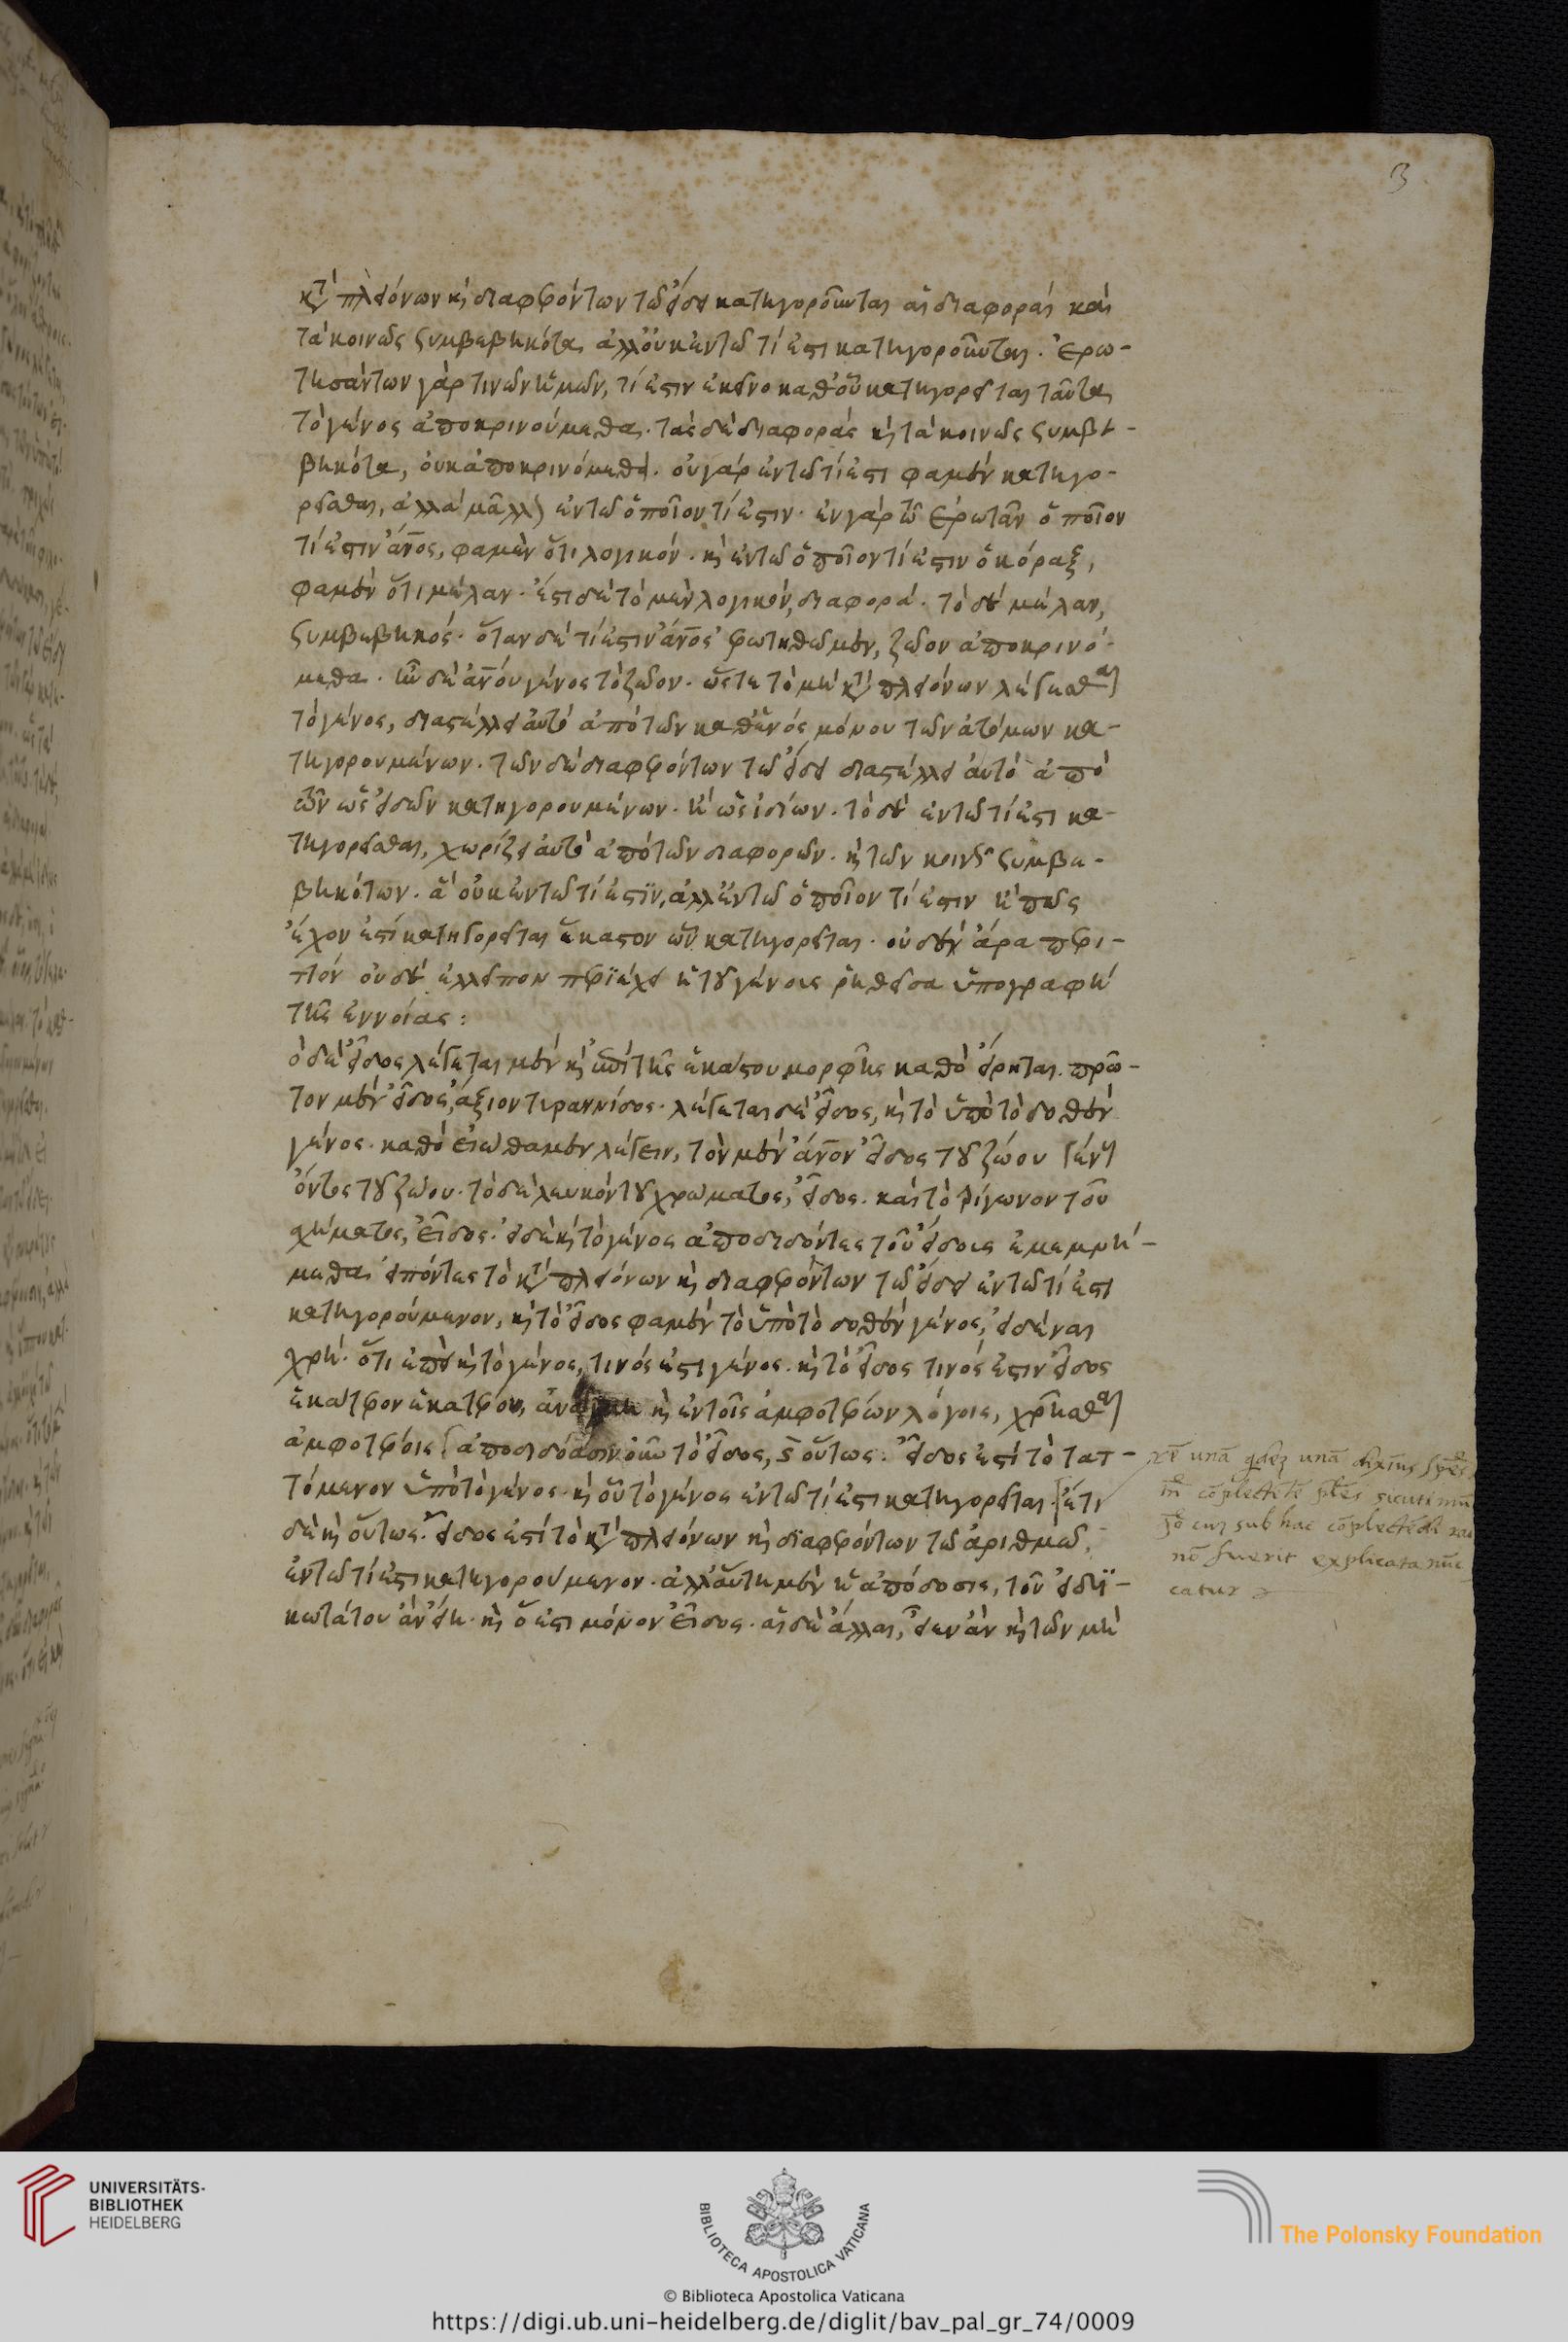 3
κτ' πλειόνων κ̀ διαφερόντων τῶ εἴδει κατηγοροῦνται αἱ διαφοραὶ καὶ
τὰ κοινῶς συμβεβηκότα, ἀλλ' οὐκ ἐν τῶ τί ἐστι κατηγοροῦνται. ἐρω-
τησάντων γάρ τινων ἡμῶν, τί ἐστιν ἐκεῖνο καθ' οὗ κατηγορεῖται ταῦτα,
τὸ γένος ἀποκρινούμεθα. τὰς δὲ διαφορὰς κ̀ τὰ κοινῶς συμβε-
βηκότα, οὐκ ἀποκρινόμεθα. οὐ γὰρ ἐν τῶ τί ἐστι φαμὲν κατηγο-
ρεῖσθαι, ἀλλὰ μᾶλλον ἐν τῶ ὁποῖον τί ἐστιν. ἐν γὰρ τῶ ἐρωτᾶν ὁποῖον
τί ἐστιν ἄνος, φαμὲν ὅτι λογικόν. κ̀ ἐν τῶ ὁποῖον τί ἐστιν ὁ κόραξ,
φαμὲν ὅτι μέλαν. ἔστι δὲ τὸ μὲν λογικόν, διαφορά. τὸ δὲ μέλαν,
συμβεβηκός. ὅταν δὲ τί ἐστιν ἄνος ἐρωτηθῶμεν, ζῶον ἀποκρινό-
μεθα. ἦν δὲ ἀνου γένος τὸ ζῶον. ὥστε τὸ μὲν κτ' πλειόνων λέγεσθαι
τὸ γένος, διαστέλλει αὐτὸ ἀπὸ τῶν καθ' ἑνὸς μόνου τῶν ἀτόμων κα-
τηγορουμένων. τῶν δὲ διαφερόντων τῶ εἴδει διαστέλλει αὐτὸ ἀπὸ
τῶν ὡς εἰδῶν κατηγορουμένων. ἢ ὡς ἰδίων. τὸ δὲ ἐν τῶ τί ἐστι κα-
τηγορεῖσθαι, χωρίζει αὐτὸ ἀπὸ τῶν διαφορῶν. κ̀ τῶν κοινῶς συμβε-
βηκότων. ἃ οὐκ ἐν τῶ τί ἐστϊν, ἀλλ' ἐν τῶ ὁποῖον τί ἐστιν ἢ πῶς
ἔχον ἐστὶ κατηγορεῖται ἕκαστον ὧν κατηγορεῖται. οὐδὲν ἄρα περι-
τὸν οὐδὲ ἐλλεῖπον περϊέχει ἡ τοῦ γένους ῥηθεῖσα ὑπογραφὴ
τῆς ἐννοίας:
ὁ δὲ εἶδος λέγεται μὲν κ̀ ἐπὶ τῆς ἑκάστου μορφῆς καθὸ εἴρηται. πρῶ-
τον μὲν εἶδος, ἄξιον τυραννίδος. λέγεται δὲ εἶδος, κ̀ τὸ ὑπὸ τὸ δοθὲν
γένος. καθὸ εἰώθαμεν λέγειν, τὸν μὲν ἄνον εἶδος τοῦ ζώου γένους
ὄντος τοῦ ζώου. τὸ δὲ λευκὸν τοῦ χρώματος, εἶδος. καὶ τὸ τρίγωνον τοῦ
σχήματος, εἶδος. εἰ δὲ κ̀ τὸ γένος ἀποδιδόντες τοῦ εἴδους ἐμεμνή-
μεθα, εἰπόντες τὸ κτ' πλειόνων κ̀ διαφερόντων τῶ εἴδει ἐν τῶ τί ἐστι
κατηγορούμενον, κ̀ τὸ εἶδος φαμὲν τὸ ὑπὸ τὸ δοθὲν γένος, εἰδέναι
χρή. ὅτι ἐπεὶ κ̀ τὸ γένος, τινός ἐστι γένος. κ̀ τὸ εἶδος τινός ἐστιν εἶδος
ἑκάτερον ἑκατέρου, ἀνάγκη κ̀ ἐν τοῖς ἀμφοτέρων λόγοις, χρῆσθαι
ἀμφοτέροις. [ἀποδιδόασιν οὖν τὸ εἶδος, κ̀ οὕτως. εἶδος ἐστὶ τὸ ταττ-
τόμενον ὑπὸ τὸ γένος. κ̀ οὗ τὸ γένος ἐν τῶ τί ἐστι κατηγορεῖται. [ἔτι
δὲ κ̀ οὕτως. εἶδος ἐστὶ τὸ κτ' πλειόνων κ̀ διαφερόντων τῶ ἀριθμῶ,
ἐν τῶ τί ἐστι κατηγορούμενον. ἀλλ' αὕτη μὲν ἡ ἀπόδοσις, τοῦ εἰδϊ-
κωτάτου ἂν εἴη. κ̀ ὅ ἐστι μόνον εἶδος. αἱ δὲ ἄλλαι, εἶεν ἂν κ̀ τῶν μὴ
unā unā
cōplectēti sicuti
sub hac
nō fuerit explicata
catur
UNIVERSITÄTS-
BIBLIOTHEK
HEIDELBERG
BIBLIOTECA APOSTOLICA VATICANA
The Polonsky Foundation
© Biblioteca Apostolica Vaticana
https://digi.ub.uni-heidelberg.de/diglit/bav_pal_gr_74/0009